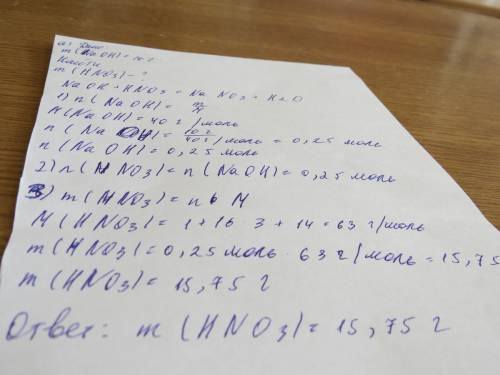 а) Дано
m(NaOH)=10 г.
Найти
m(HNO3)-?
NaOH+HNO3=NaNO3+H2O
1) n(NaOH)= m/M
M(NaOH)=40 г/моль
n(NaOH)= 10 г/40 г/моль = 0,25 моль
n(NaOH)=0,25 моль
2) n(HNO3)=n(NaOH)=0,25 моль
3) m(HNO3)=n M
M(HNO3)=1+16·3+14=63 г/моль
m(HNO3)=0,25 моль·63 г/моль=15,75
m(HNO3)=15,75 г
Ответ: m(HNO3)=15,75 г